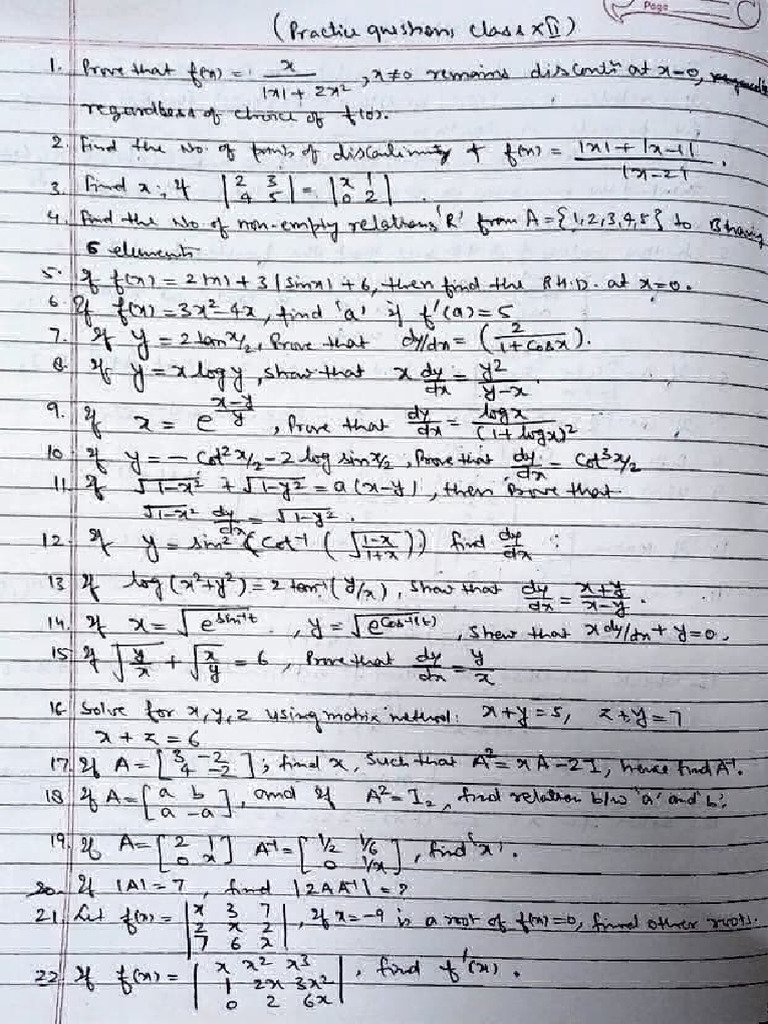 Page
(Practice questions class XII)
1. Prove that f(x) = x / (|x| + 2x²), x≠0 remains discontⁿ at x=0,
regardless of choice of f(0).
2. Find the No. of points of discontinuity of f(x) = (|x| + |x-1|) / |x-2|.
3. Find x; if |2 3; 4 5| = |x 1; 0 2|.
4. Find the No of non-empty relations 'R' from A = {1,2,3,4,5} to B having
5 elements
5. If f(x) = 2|x| + 3|sinx| + 6, then find the R.H.D. at x=0.
6. If f(x) = 3x² - 4x, find 'a' if f'(a) = 5
7. If y = 2 tan x/2, Prove that dy/dx = (2 / (1+cosx)).
8. If y = x log y, show that x dy/dx = y² / (y-x).
9. If x = e^((x-y)/y), Prove that dy/dx = log x / (1+logx)²
10 If y = - cot² x/2 - 2 log sin x/2, Prove that dy/dx = cot³ x/2
11. If √(1-x²) + √(1-y²) = a(x-y), then Prove that
√(1-x²) dy/dx = √(1-y²).
12. If y = sin² (cot⁻¹ (√((1-x)/(1+x)))) find dy/dx :
13 If log(x²+y²) = 2 tan⁻¹(y/x), show that dy/dx = (x+y)/(x-y).
14. If x = √(e^(sin⁻¹t)), y = √(e^(cos⁻¹(t))), show that x dy/dx + y = 0.
15 If √(y/x) + √(x/y) = 6, Prove that dy/dx = y/x
16 Solve for x, y, z using matrix method: x+y=5, z+y=7
x + z = 6
17. If A = [3 -2; 4 -2]; find x, such that A² = xA - 2I, hence find A⁻¹.
18 If A = [a b; a -a], and if A² = I₂, find relation b/w 'a' and 'b'.
19. If A = [2 1; 0 x] A⁻¹ = [1/2 1/6; 0 1/x], find 'x'.
20. If |A| = 7, find |2AA⁻¹| = ?
21. Let f(x) = |x 3 7; 2 x 2; 7 6 x|, If x=-9 is a root of f(x)=0, find other roots.
22 If f(x) = |x x² x³; 1 2x 3x²; 0 2 6x|, find f'(x).